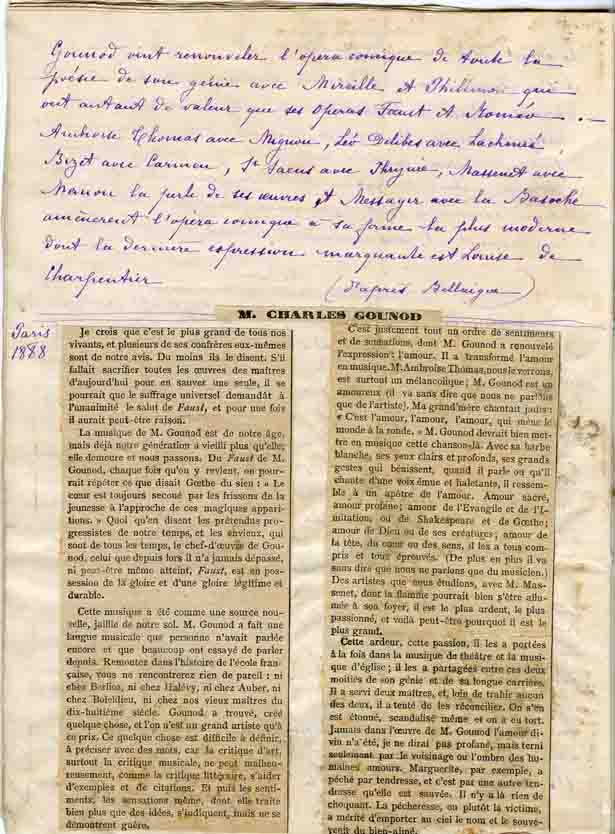 Gounod vint renouveler l'opera comique de toute la
poésie de son génie avec Mireille et Philémon qui
ont autant de valeur que ses Operas Faust et Roméo.—
Ambroise Thomas avec Mignon, Léo Delibes avec Lackmé
Bizet avec Carmen, St Saens avec Phryné, Massenet avec
Manon la perle de ses œuvres et Messager avec la Basoche
amenèrent l'opera comique à sa forme la plus moderne
dont la dernière expression marquante est Louise de
Charpentier (d'après Bellaigue)
M. CHARLES GOUNOD
Paris
1888
Je crois que c'est le plus grand de tous nos
vivants, et plusieurs de ses confrères eux-mêmes
sont de notre avis. Du moins ils le disent. S'il
fallait sacrifier toutes les œuvres des maîtres
d'aujourd'hui pour en sauver une seule, il se
pourrait que le suffrage universel demandât à
l'unanimité le salut de Faust, et pour une fois
il aurait peut-être raison.
La musique de M. Gounod est de notre âge,
mais déjà notre génération a vieilli plus qu'elle;
elle demeure et nous passons. Du Faust de M.
Gounod, chaque fois qu'on y revient, on pour-
rait répéter ce que disait Gœthe du sien : « Le
cœur est toujours secoué par les frissons de la
jeunesse à l'approche de ces magiques appari-
tions. » Quoi qu'en disent les prétendus pro-
gressistes de notre temps, et les envieux, qui
sont de tous les temps, le chef-d'œuvre de Gou-
nod, celui que depuis lors il n'a jamais dépassé,
ni peut-être même atteint, Faust, est en pos-
session de la gloire et d'une gloire légitime et
durable.
Cette musique a été comme une source nou-
velle, jaillie de notre sol. M. Gounod a fait une
langue musicale que personne n'avait parlée
encore et que beaucoup ont essayé de parler
depuis. Remontez dans l'histoire de l'école fran-
çaise, vous ne rencontrerez rien de pareil : ni
chez Berlioz, ni chez Halévy, ni chez Auber, ni
chez Boïeldieu, ni chez nos vieux maîtres du
dix-huitième siècle. Gounod a trouvé, créé
quelque chose, et l'on n'est un grand artiste qu'à
ce prix. Ce quelque chose est difficile à définir,
à préciser avec des mots, car la critique d'art,
surtout la critique musicale, ne peut malheu-
reusement, comme la critique littéraire, s'aider
d'exemples et de citations. Et puis les senti-
ments, les sensations même, dont elle traite
bien plus que des idées, s'indiquent, mais ne se
démontrent guère.
C'est justement tout un ordre de sentiments
et de sensations, dont M. Gounod a renouvelé
l'expression: l'amour. Il a transformé l'amour
en musique. M. Ambroise Thomas, nous le verrons,
est surtout un mélancolique; M. Gounod est un
amoureux (il va sans dire que nous ne parlons
que de l'artiste). Ma grand'mère chantait jadis:
« C'est l'amour, l'amour, l'amour, qui mène le
monde à la ronde. » M. Gounod devrait bien met-
tre en musique cette chanson-là. Avec sa barbe
blanche, ses yeux clairs et profonds, ses grands
gestes qui bénissent, quand il parle ou qu'il
chante d'une voix émue et haletante, il ressem-
ble à un apôtre de l'amour. Amour sacré,
amour profane; amour de l'Evangile et de l'I-
mitation, ou de Shakespeare et de Gœthe;
amour de Dieu ou de ses créatures; amour de
la tête, du cœur ou des sens, il les a tous com-
pris et tous éprouvés. (De plus en plus il va
sans dire que nous ne parlons que du musicien.)
Des artistes que nous étudions, avec M. Mas-
senet, dont la flamme pourrait bien s'être allu-
mée à son foyer, il est le plus ardent, le plus
passionné, et voilà peut-être pourquoi il est le
plus grand.
Cette ardeur, cette passion, il les a portées
à la fois dans la musique de théâtre et la musi-
que d'église; il les a partagées entre ces deux
moitiés de son génie et de sa longue carrière.
Il a servi deux maîtres, et, loin de trahir aucun
des deux, il a tenté de les réconcilier. On s'en
est étonné, scandalisé même et on a eu tort.
Jamais dans l'œuvre de M. Gounod l'amour di-
vin n'a été, je ne dirai pas profané, mais terni
seulement par le voisinage ou l'ombre des hu-
maines amours. Marguerite, par exemple, a
péché par tendresse, et c'est par une autre ten-
dresse qu'elle est sauvée. Il n'y a là rien de
choquant. La pécheresse, ou plutôt la victime,
a mérité d'emporter au ciel le nom et le souve-
venir du bien-aimé.